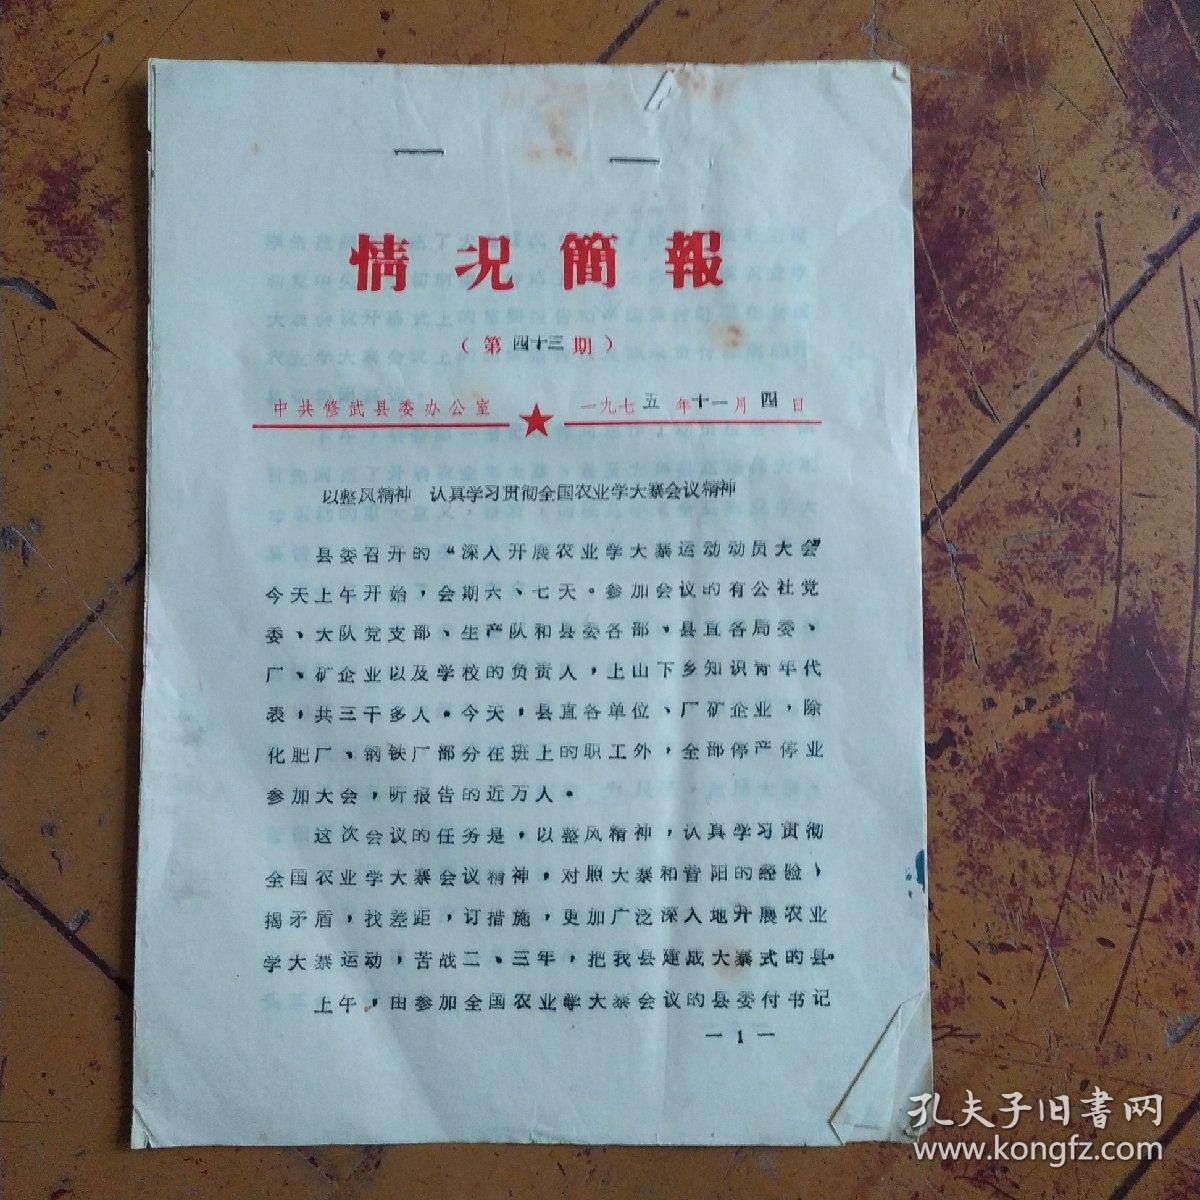 情况簡報
（第四十三期）
中共修武县委办公室 一九七五年十一月四日
以整风精神 认真学习贯彻全国农业学大寨会议精神
县委召开的“深入开展农业学大寨运动动员大会”
今天上午开始，会期六、七天。参加会议的有公社党
委、大队党支部、生产队和县委各部、县直各局委、
厂、矿企业以及学校的负责人，上山下乡知识青年代
表，共三千多人。今天，县直各单位、厂矿企业，除
化肥厂、钢铁厂部分在班上的职工外，全部停产停业
参加大会，听报告的近万人。
这次会议的任务是，以整风精神，认真学习贯彻
全国农业学大寨会议精神，对照大寨和昔阳的经验，
揭矛盾，找差距，订措施，更加广泛深入地开展农业
学大寨运动，苦战二、三年，把我县建成大寨式的县。
上午，由参加全国农业学大寨会议的县委付书记
—1—
孔夫子旧书网
www.kongfz.com